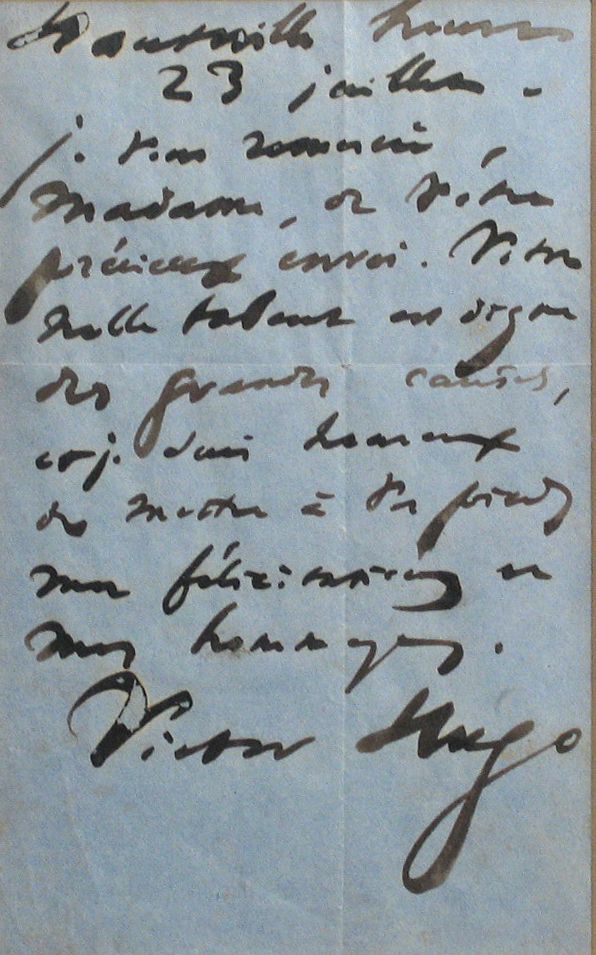 Hauteville house
23 juillet -
je vous remercie,
Madame, de votre
précieux envoi. Votre
noble talent est digne
des grandes causes,
et je suis heureux
de mettre à vos pieds
mes félicitations et
mes hommages.
Victor Hugo